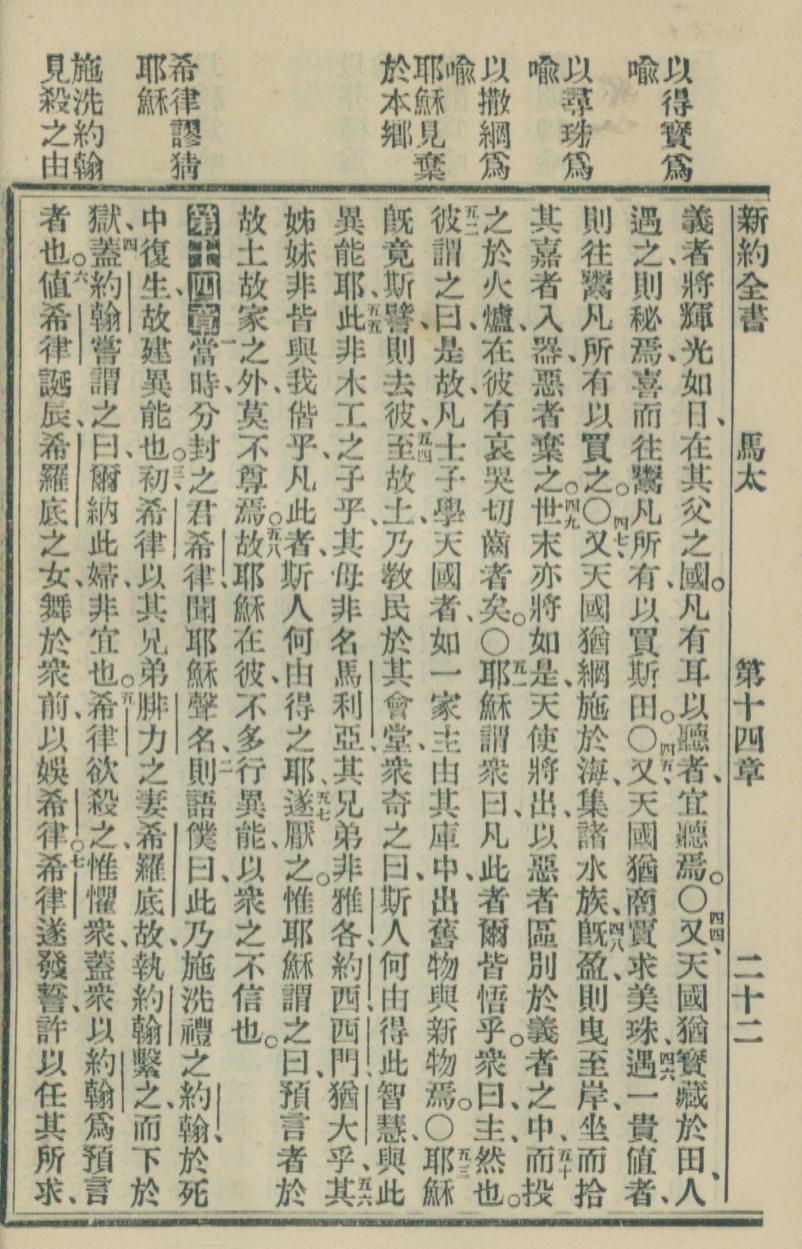 以得寶爲
喻
以尋珠爲
喻
以撒網爲
喻
耶穌見棄
於本鄉
希律謬猜
耶穌
施洗約翰
見殺之由
新約全書 馬太 第十四章 二十二
義者將輝光如日、在其父之國。凡有耳以聽者、宜聽焉。〇四四又天國猶寶藏於田、人
遇之、則秘焉、喜而往鬻凡所有、以買斯田。〇四五又天國猶商賈求美珠、四六遇一貴值者、
則往鬻凡所有以買之。〇四七又天國猶網施於海、集諸水族、四八旣盈、則曳至岸、坐而拾
其嘉者入器、惡者棄之。四九世末亦將如是、天使將出、以惡者區別於義者之中、五十而投
之於火爐、在彼有哀哭切齒者矣。〇五一耶穌謂衆曰、凡此者爾皆悟乎。衆曰、主、然也。
五二彼謂之曰、是故凡士子學天國者、如一家主、由其庫中、出舊物與新物焉。〇五三耶穌
旣竟斯譬、則去彼、五四至故土、乃敎民於其會堂、衆奇之曰、斯人何由得此智慧、與此
異能耶、五五此非木工之子乎、其母非名馬利亞、其兄弟非雅各約西西門猶大乎、五六其
姊妹非皆與我偕乎、凡此者、斯人何由得之耶、五七遂厭之。惟耶穌謂之曰、預言者於
故土故家之外、莫不尊焉。五八故耶穌在彼、不多行異能、以衆之不信也。
第十四章 一當時、分封之君希律、聞耶穌聲名、二則語僕曰、此乃施洗禮之約翰、於死
中復生、故建異能也。三初、希律以其兄弟腓力之妻希羅底故、執約翰繫之、而下於
獄、四蓋約翰嘗謂之曰、爾納此婦、非宜也。五希律欲殺之、惟懼衆、蓋衆以約翰爲預言
者也。六値希律誕辰、希羅底之女、舞於衆前、以娛希律。七希律遂發誓、許以任其所求、